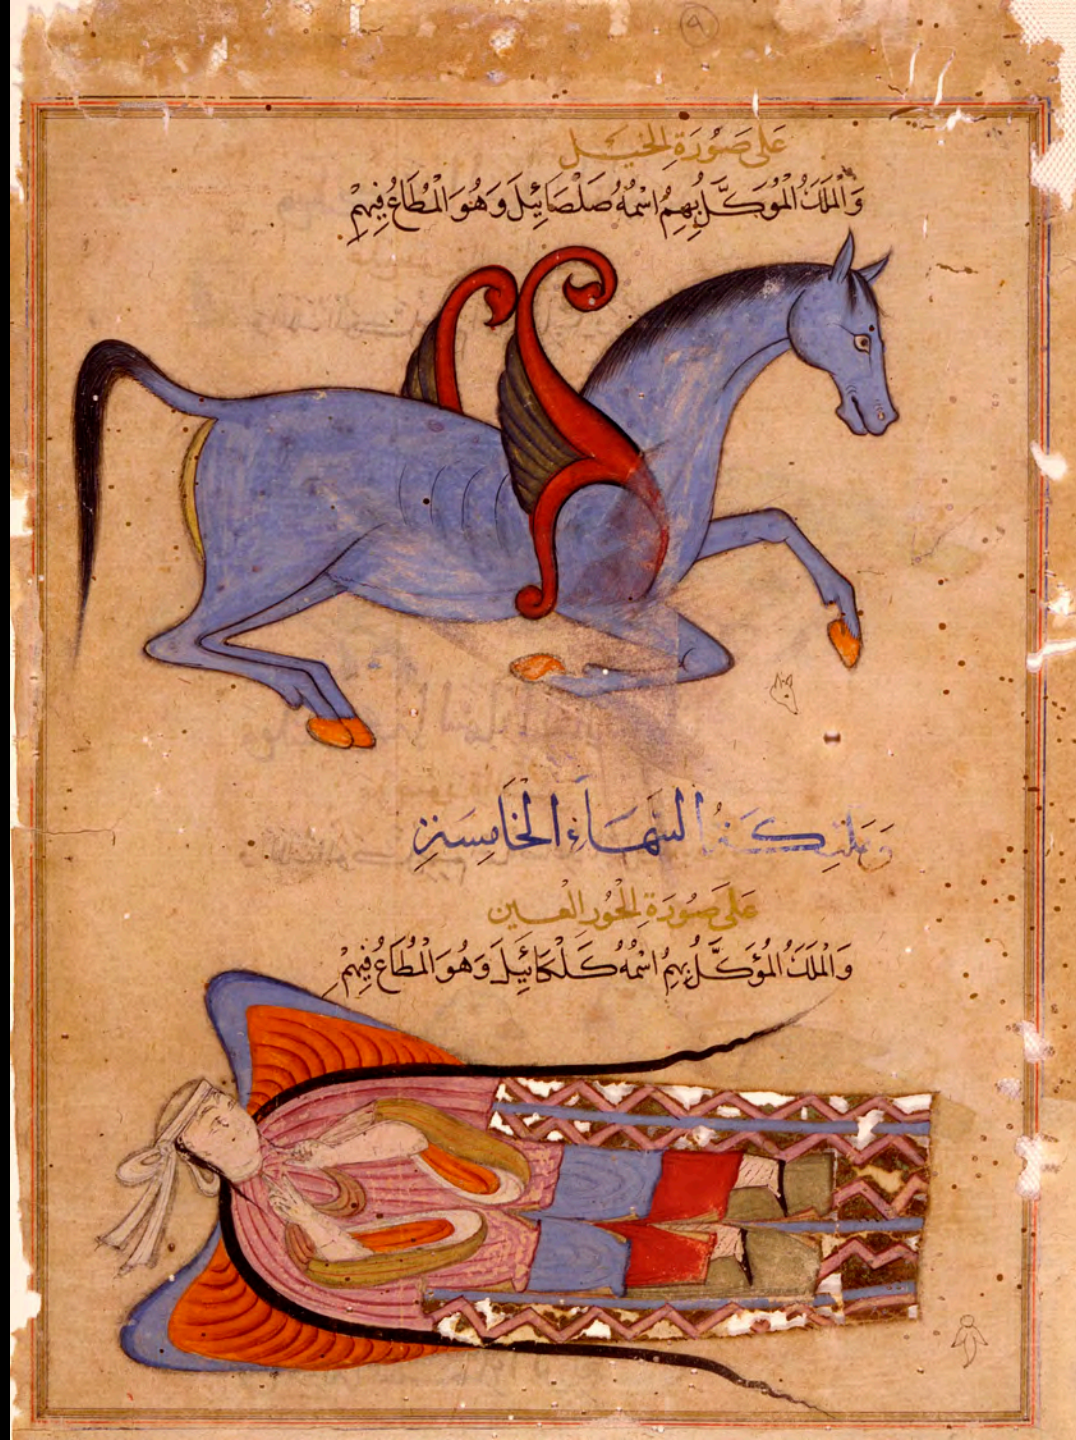 ٩
عَلَى صُورَةِ الخَيْل
وَالْمَلَكُ الْمُوَكَّلُ بِهِمْ اسْمُهُ صَلْصَائِيْلَ وَهُوَ الْمُطَاعُ فِيْهِمْ
وَمَلٰئِكَةُ السَّمَاءِ الْخَامِسَةِ
عَلَى صُورَةِ الْحُورِ الْعِيْن
وَالْمَلَكُ الْمُؤَكَّلُ بِهِمُ اسْمُهُ كَلْكَائِيلَ وَهُوَ الْمُطَاعُ فِيْهِمْ